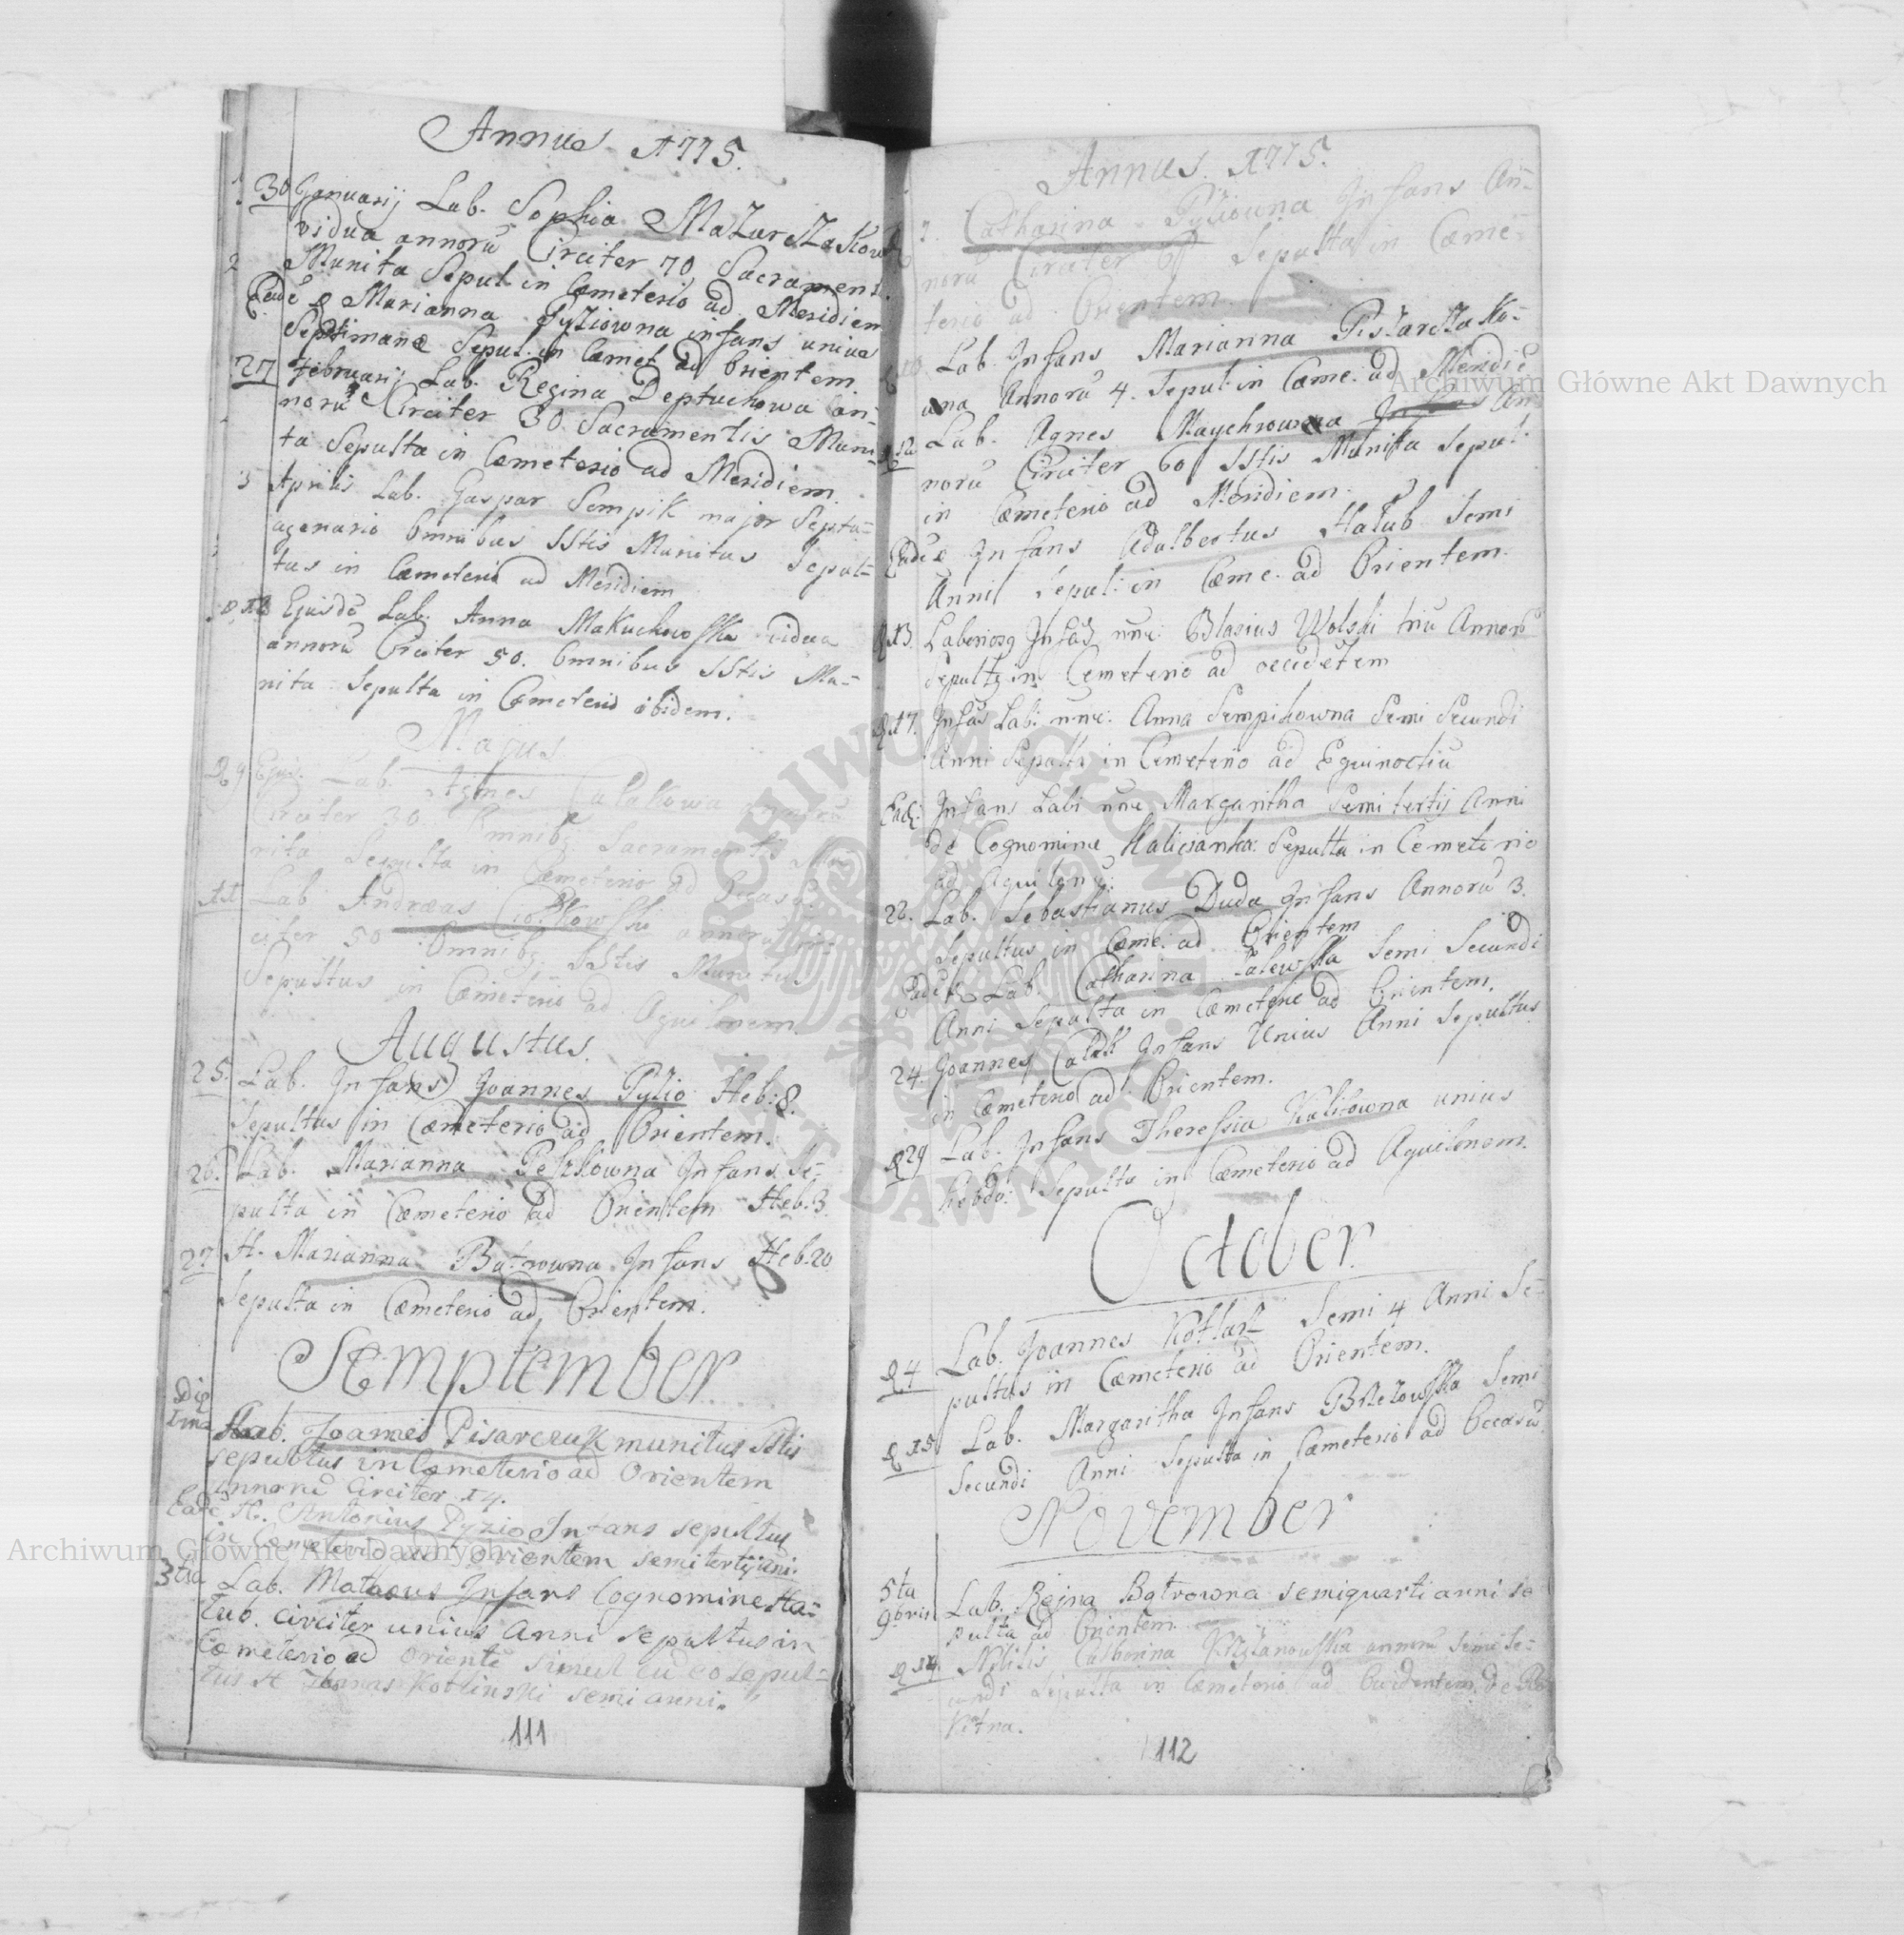 Annus 1775.
30 Januarij Lab. Sophia Mazurczakow
vidua annorū Circiter 70 Sacrament.
Munita Sepul. in Cæmeterio ad Meridiem
Eadē Marianna Pyziowna infans unius
Septimanæ Sepul. in Cæmet. ad Orientem.
27 Februarij Lab. Regina Deptuchowa an=
norū Circiter 30 Sacramentis Muni=
ta Sepulta in Cæmeterio ad Meridiem.
3 Aprilis Lab. Gaspar Sempik major Septu=
agenario Omnibus SStis Munitus Sepul=
tus in Cæmeterio ad Meridiem
Ejusdē Lab. Anna Makuchowska vidua
annorū Circiter 50. Omnibus SStis Mu=
nita Sepulta in Cæmeterio ibidem.
Majus.
Lab. Agnes Calakowa
Circiter 30. Omnibq Sacramentis Mu=
nita Sepulta in Cæmeterio ad Occasū.
11 Lab. Andræas Ciołkowski annorū Cir=
citer 50 Omnibq SStis Munitus
Sepultus in Cæmeterio ad Aquilonem.
Augustus.
25. Lab. Infans Joannes Pyzio Heb: 8.
Sepultus in Cæmeterio ad Orientem.
26. Lab. Marianna Peszkowna Infans Se=
pulta in Cæmeterio ad Orientem Heb. 3.
27 H. Marianna Bątrowna Infans Heb. 20
Sepulta in Cæmeterio ad Orientem.
Semptember
Die 1ma Lab. Joannes Pisarczuk munitus SStis
sepultus in Cæmeterio ad Orientem
annorū Circiter 14.
Eadē H. Antonius Pyzio Infans sepultus
in Cæmeterio ad Orientem semitertij ani.
3tia Lab. Mathæus Infans Cognomine Ha=
łub. circiter unius Anni sepultus in
Cæmeterio ad Orientē simul cū eo sepul=
tus H Kotlinski semi anni.
111
Annus. 1775.
7. Catharina Pyziowna Infans An=
norū Circiter 6 Sepulta in Cæme=
terio ad Orientem.
10. Lab. Infans Marianna Pisarczako=
wna Annorū 4. Sepul: in Cæme. ad Meridiē
12 Lab. Agnes Maychrowa Infans An
norū Circiter 60 SStis Munita Sepul:
in Cæmeterio ad Meridiem.
Eadē Infans Adalbertus Hałub Semi
Anni Sepul: in Cæme. ad Orientem.
13. Laboriosq Infās nne: Blasius Wolski triū Annorū
Sepultq in Cemeterio ad occidētem
17. Infās Labi: nne: Anna Sempikowna Semi Secundi
Anni Sepulta in Cemeterio ad Equinoctiū
Eadē: Infans Labi nne Margaritha Semi tertij Anni
de Cognomine Kalicianka: Sepulta in Cemeterio
ad Aquilonē:
22. Lab. Sebastianus Duda Infans Annorū 3.
Sepultus in Cæme: ad Orientem
Eadē Lab. Catharina Zalewska Semi Secundi
Anni Sepulta in Cæmeterio ad Orientem.
24. Joannes Całak Infans Unius Anni Sepultus
in Cæmeterio ad Orientem.
29 Lab. Infans Theressia Kalitowna unius
hebdo: Sepulta in Cæmeterio ad Aquilonem.
October.
4 Lab. Joannes Kotlarz Semi 4 Anni Se=
pultus in Cæmeterio ad Orientem.
15 Lab. Margaritha Infans Brzezowska Semi
Secundi Anni Sepulta in Cæmeterio ad Occasū.
November
5ta 9bris Lab. Regina Bątrowna semiquarti anni se
pulta ad Orientem.
14. Nobilis Krzyżanowska semi Se=
cundi Sepulta in Cæmeterio ad Occidentem de Ro
kitna.
112
Archiwum Główne Akt Dawnych
Archiwum Główne Akt Dawnych
ARCHIWUM GŁÓWNE AKT DAWNYCH